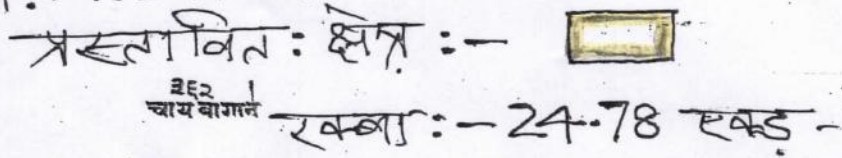 प्रस्तावित : क्षेत्र :-
३६२
चाय बागान
रकबा :- 24.78 एकड़ -